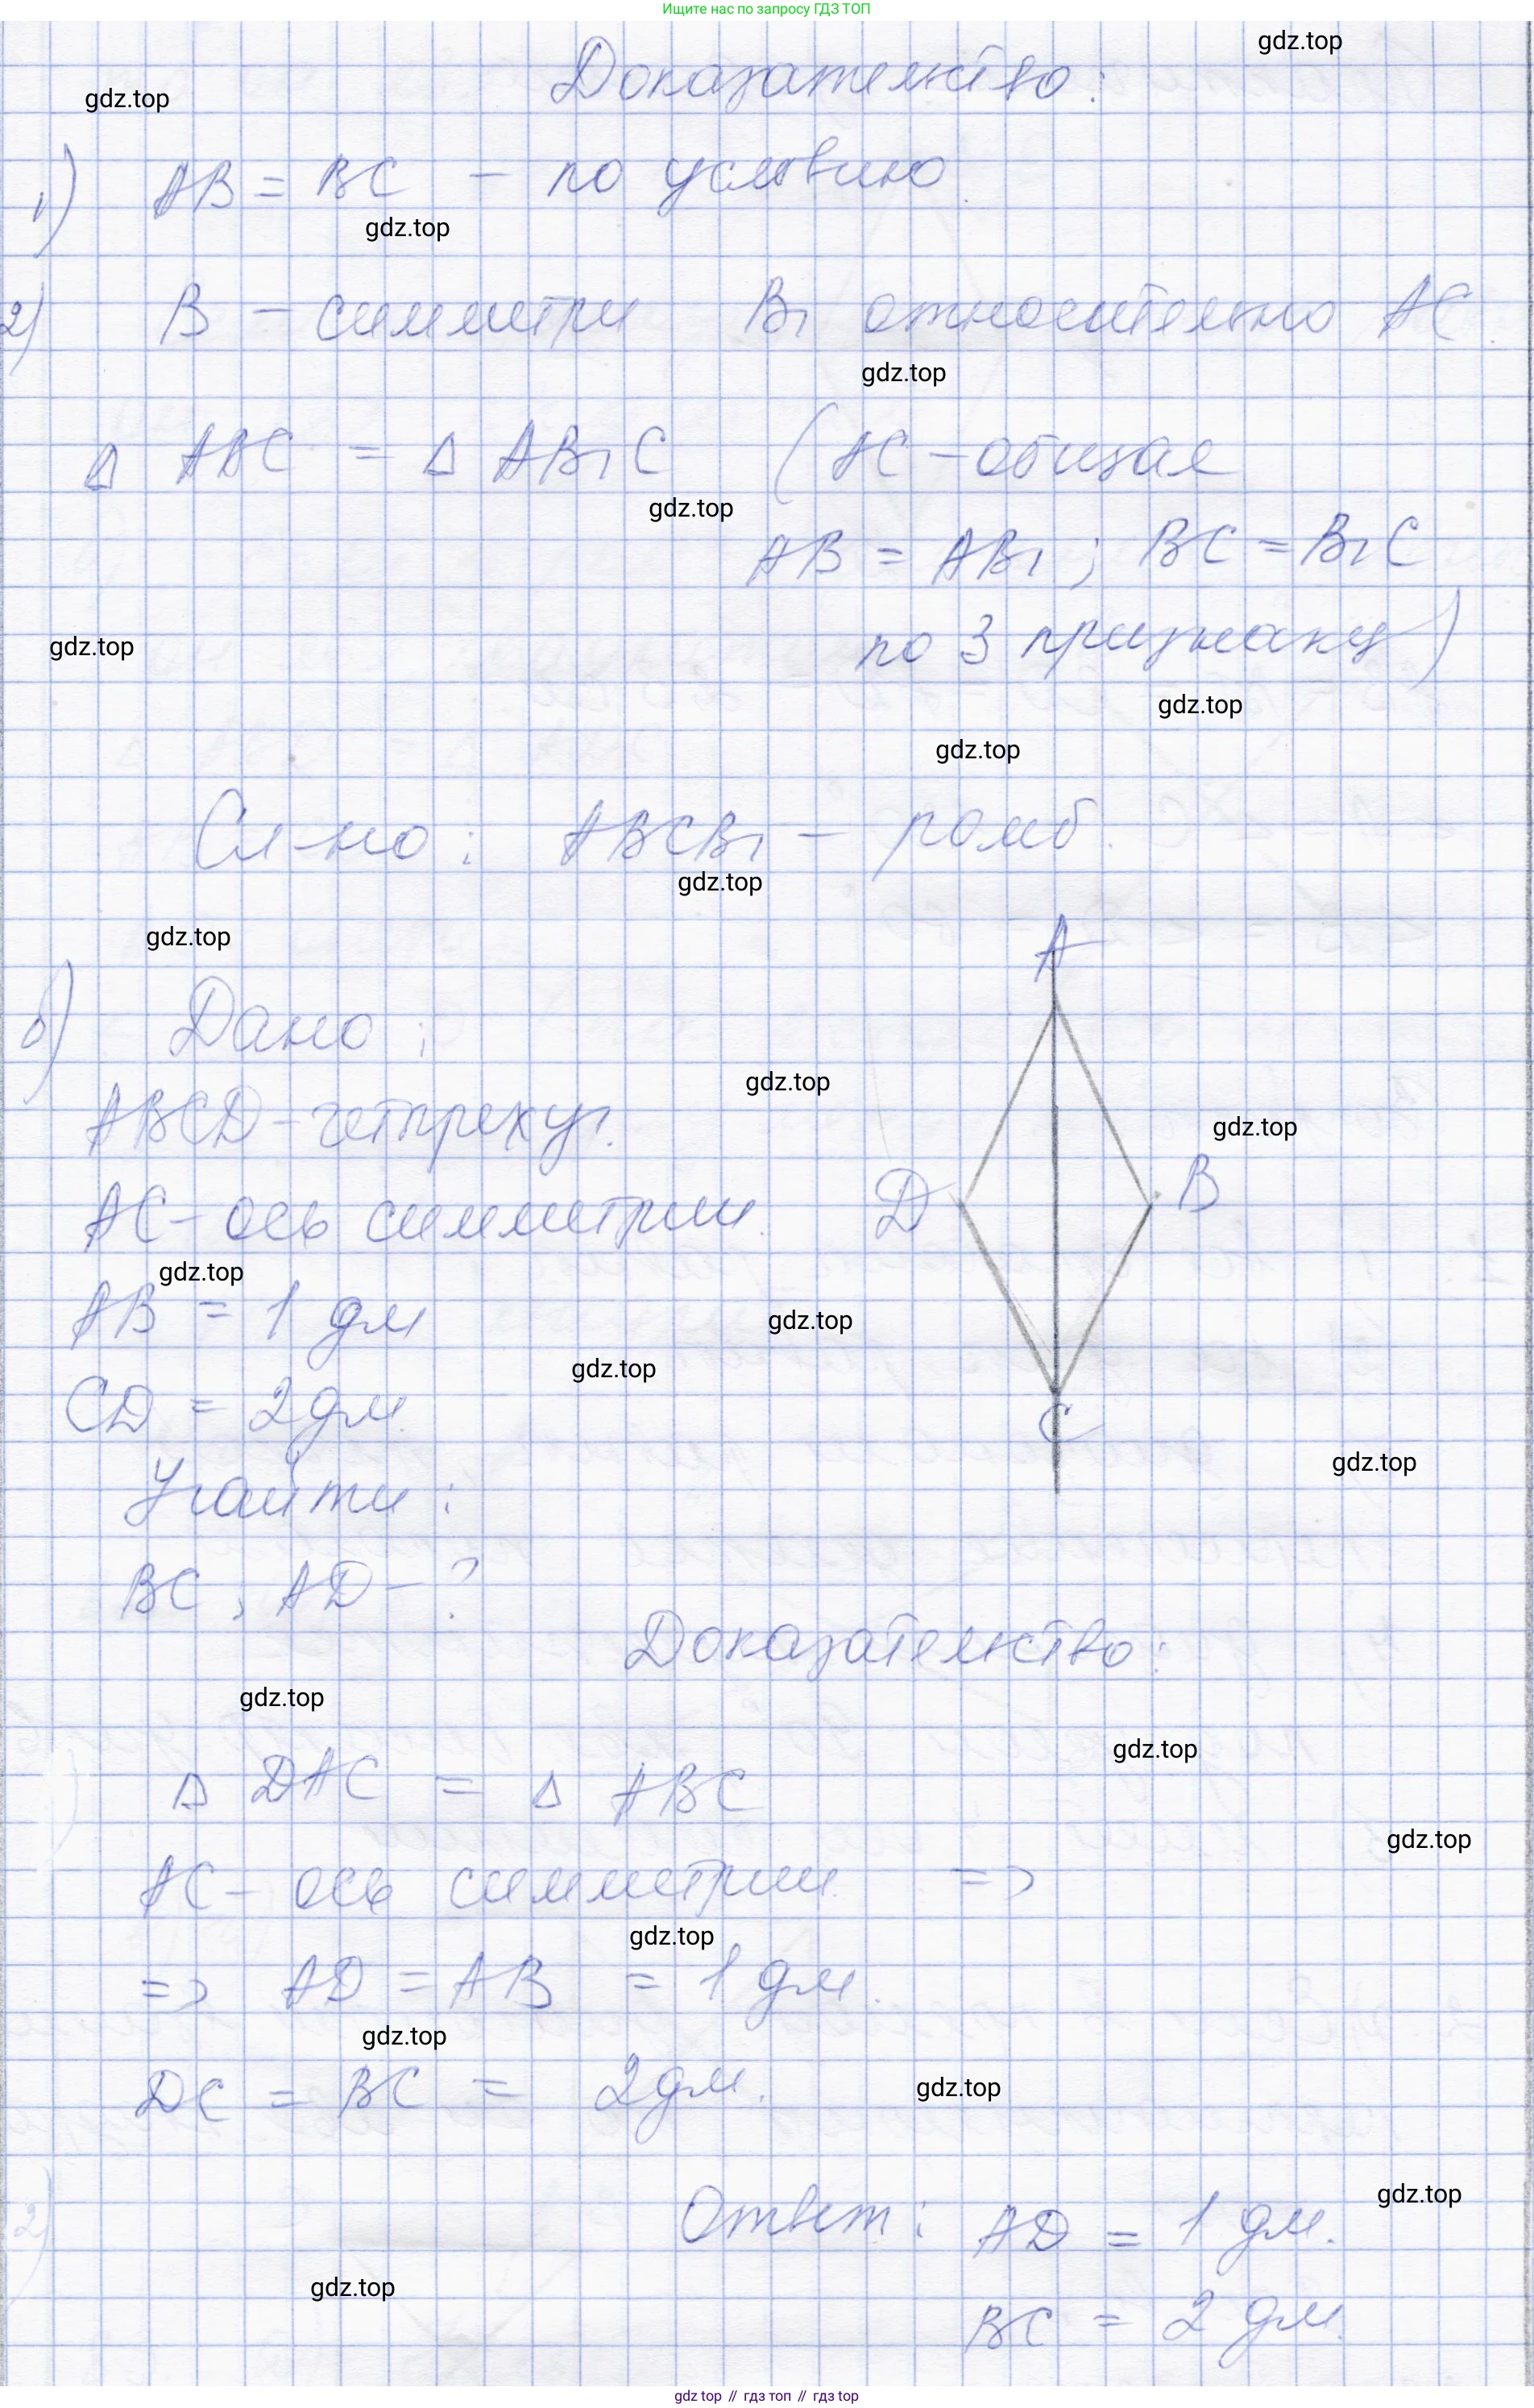 Ищите нас по запросу ГДЗ ТОП
gdz.top
Доказательство:
gdz.top
1) AB = BC - по условию.
gdz.top
2) B - симметри B₁ относительно AC.
gdz.top
Δ ABC = Δ AB₁C (AC - общая
gdz.top
AB = AB₁; BC = B₁C
по 3 признаку)
gdz.top
gdz.top
gdz.top
Сл-но: ABCB₁ - ромб.
gdz.top
gdz.top
A
б) Дано:
gdz.top
ABCD - четырехуг.
gdz.top
D B
AC - ось симметрии.
gdz.top
AB = 1 дм
gdz.top
gdz.top
CD = 2 дм.
C
gdz.top
Найти:
BC, AD - ?
Доказательство:
gdz.top
gdz.top
Δ DAC = Δ ABC
gdz.top
AC - ось симметрии. =>
gdz.top
=> AD = AB = 1 дм.
gdz.top
DC = BC = 2 дм.
gdz.top
gdz.top
Ответ: AD = 1 дм.
gdz.top
BC = 2 дм.
gdz top // гдз топ // гдз top